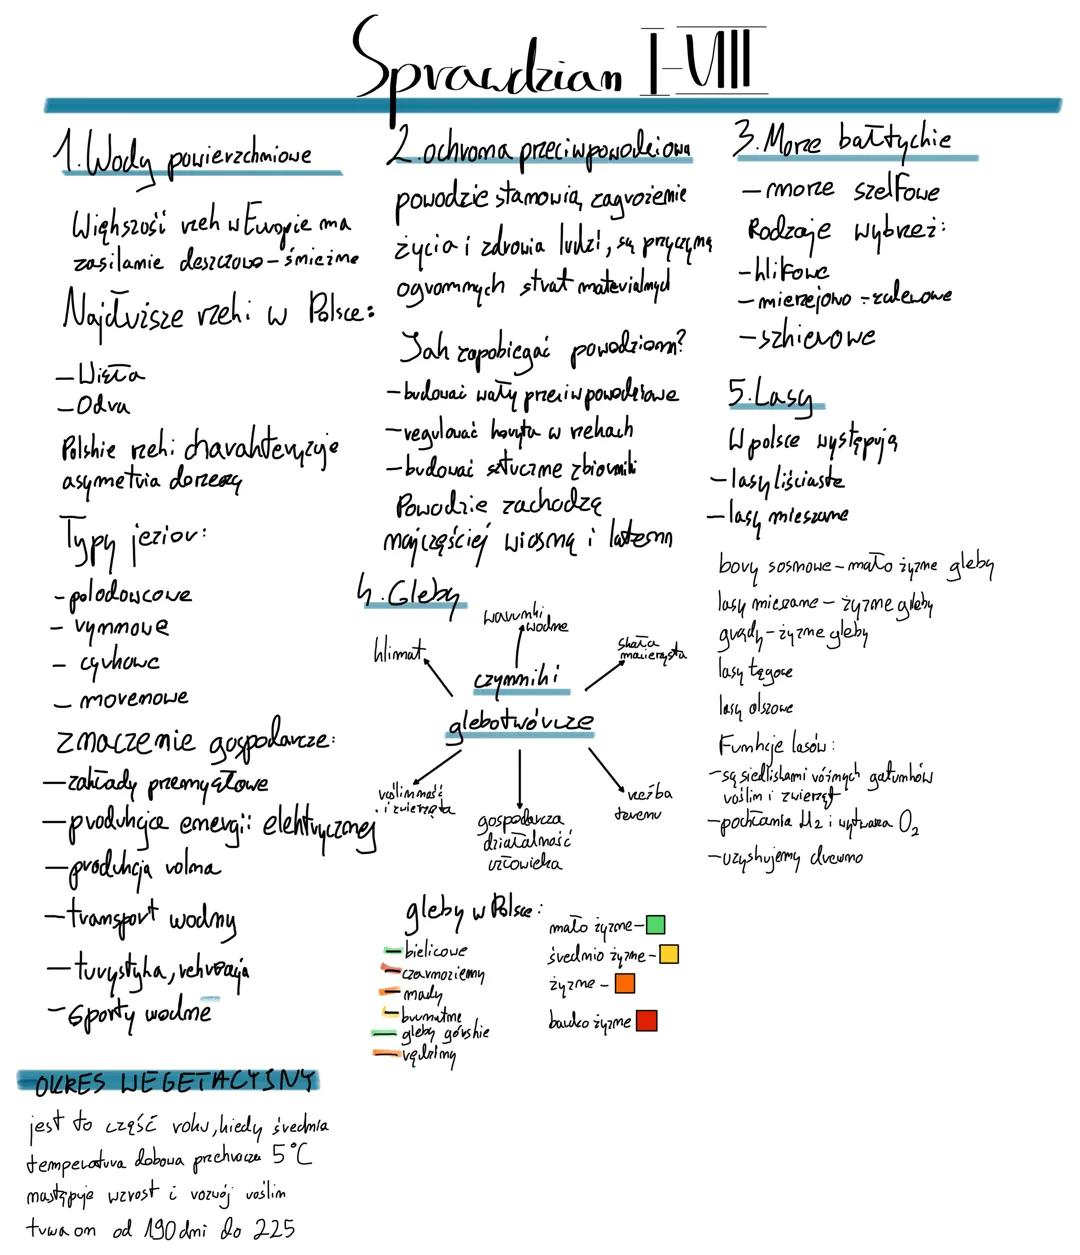 Sprawdzian I-VIII
1. Wody powierzchniowe
Większość rzek w Europie ma
zasilanie deszczowo-śnieżne
Najdłuższe rzeki w Polsce:
-Wisła
-Odra
Polskie rzeki charakteryzuje
asymetria dorzeczy
Typy jezior:
-polodowcowe
- rynnowe
- cyrkowe
- morenowe
znaczenie gospodarcze:
-zakłady przemysłowe
-produkcja energii elektrycznej
-produkcja rolna
-transport wodny
-turystyka, rekreacja
-sporty wodne
OKRES WEGETACYJNY
jest to część roku, kiedy średnia
temperatura dobowa przekracza 5°C
następuje wzrost i rozwój roślin
trwa on od 190 dni do 225
2. ochrona przeciwpowodziowa
powodzie stanowią zagrożenie
życia i zdrowia ludzi, są przyczyną
ogromnych strat materialnych
Jak zapobiegać powodziom?
-budować wały przeciwpowodziowe
-regulować koryta w rzekach
-budować sztuczne zbiorniki
Powodzie zachodzą
najczęściej wiosną i latem
4. Gleby
warunki
wodne
klimat
skała
macierzysta
czynniki
glebotwórcze
roślinność
i zwierzęta
gospodarcza
działalność
człowieka
rzeźba
terenu
gleby w Polsce:
-bielicowe
-czarnoziemy
-mady
-brunatne
-gleby górskie
-rędziny
mało żyzne-
średnio żyzne-
żyzne -
bardzo żyzne
3. Morze bałtyckie
-morze szelfowe
Rodzaje wybrzeż:
-klifowe
-mierzejowo-zalewowe
-szkierowe
5. Lasy
W polsce występują
-lasy liściaste
-lasy mieszane
bory sosnowe-mało żyzne gleby
lasy mieszane - żyzne gleby
grądy-żyzne gleby
lasy łęgowe
lasy olszowe
Funkcje lasów:
-są siedliskami różnych gatunków
roślin i zwierząt
-pochłania i wytwarza O₂
-uzyskujemy drewno